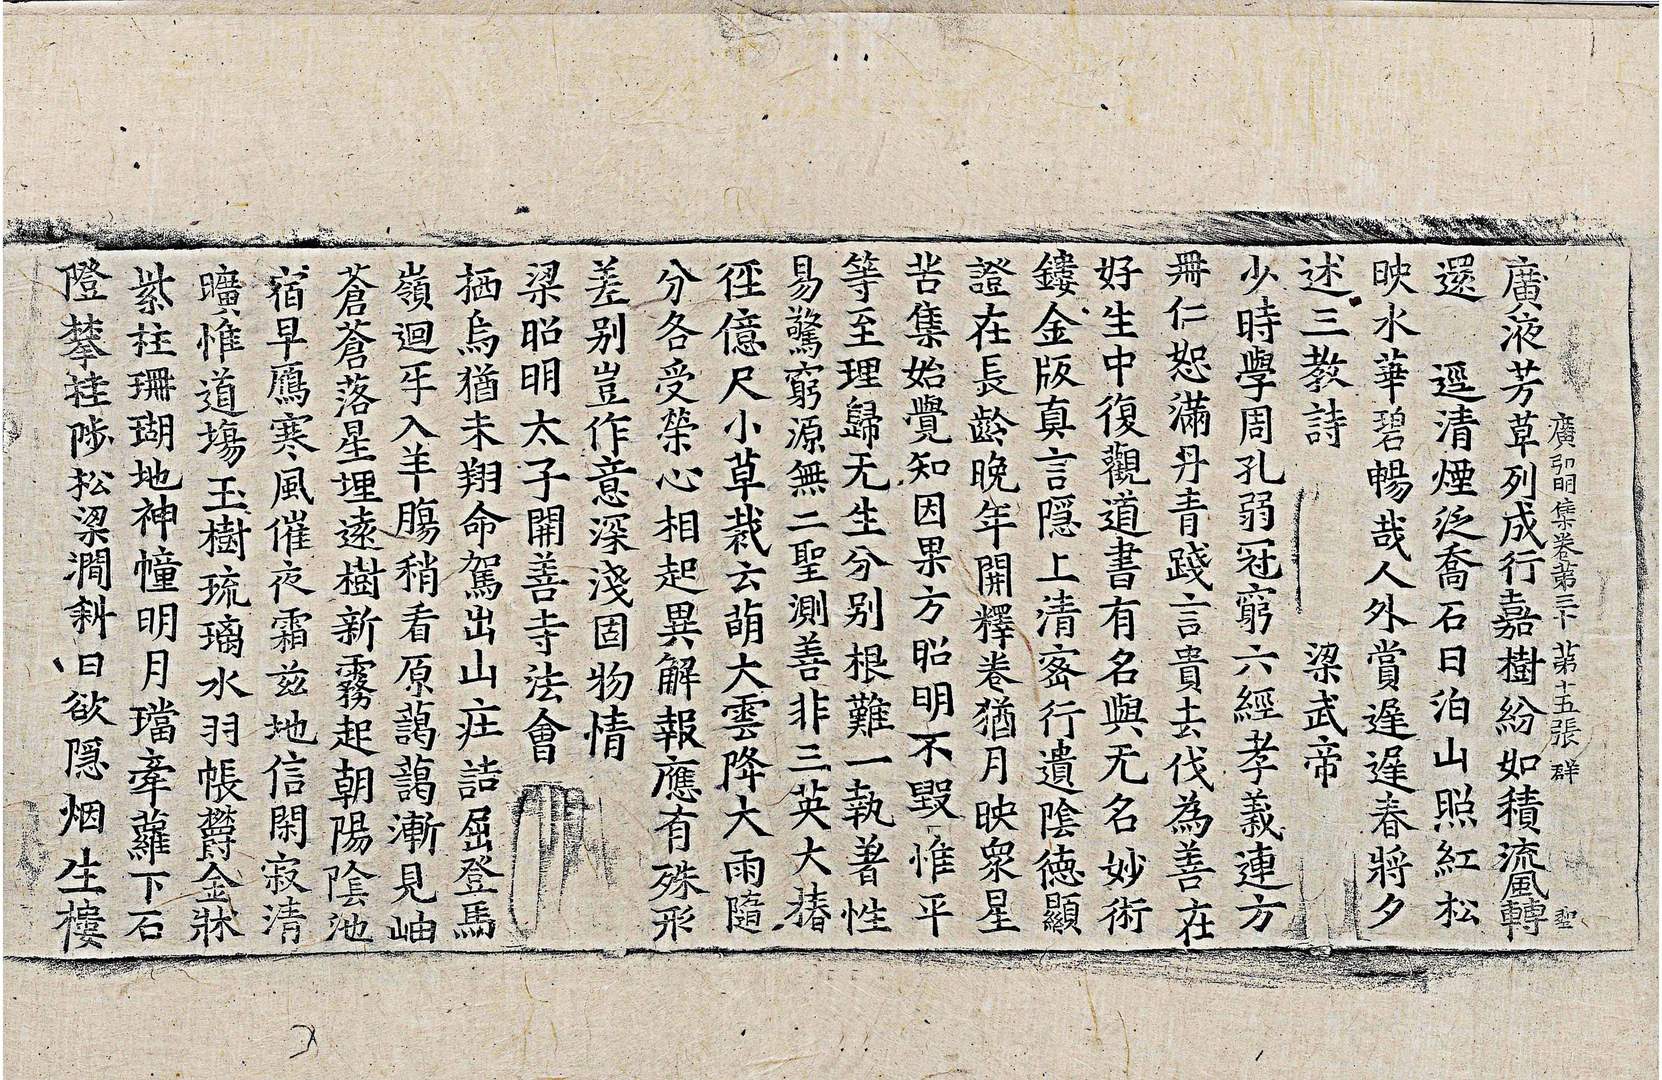 廣弘明集卷第三十下 第十五張 群
廣液芳草列成行嘉樹紛如積流風轉
還 逕清煙泛喬石日泊山照紅松
映水華碧暢哉人外賞遲遲春將夕
述三教詩 梁武帝
少時學周孔弱冠窮六經孝義連方
冊仁恕滿丹青踐言貴去伐為善在
好生中復觀道書有名與无名妙術
鏤金版真言隱上清密行遺陰德顯
證在長齡晚年開釋卷猶月映衆星
苦集始覺知因果方昭明不毀惟平
等至理歸无生分別根難一執著性
易驚窮源無二聖測善非三英大椿
徑億尺小草裁云萌大雲降大雨隨
分各受榮心相起異解報應有殊形
差別豈作意深淺固物情
梁昭明太子開善寺法會
栖烏猶未翔命駕出山庄詰屈登馬
嶺迴牙入羊腸稍看原藹藹漸見岫
蒼蒼落星埋遠樹新霧起朝陽陰池
宿早鴈寒風催夜霜兹地信閑寂清
曠惟道場玉樹琉璃水羽帳欝金牀
紫柱珊瑚地神幢明月璫牽蘿下石
隥攀桂陟松梁澗斜日欲隱烟生樓
聖